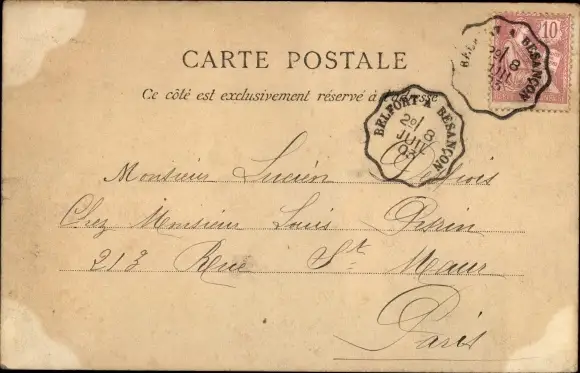 CARTE POSTALE
Ce côté est exclusivement réservé à l'adresse
10
BELFORT A BESANÇON
8
JUIL
03
BELFORT A BESANÇON
2º/ 8
JUIL
03
Monsieur Lucien
Chez Monsieur Louis Perrin
213 Rue St Maur
Paris